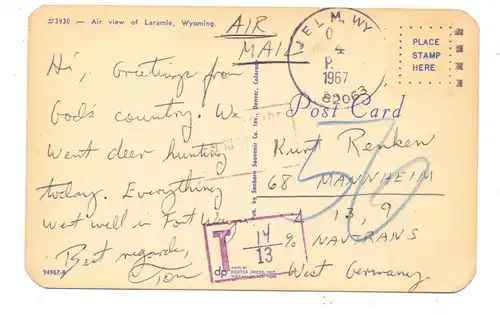 #3930 — Air view of Laramie, Wyoming.
AIR
MAIL
JELM, WY
4
P.
1967
82063
PLACE
STAMP
HERE
Post Card
Hi, Greetings from
God's country. We
went deer hunting
today. Everything
wet well in Fort Wayne
Best regards,
Tom
Pub. by Sanborn Souvenir Co. Inc., Denver, Colorado
Kurt Renken
68 MANNHEIM
13, 9
NAVTRANS
West Germany.
T 14/13 %
94967-B
dp
MADE BY
DEXTER PRESS, INC.
WEST NYACK, NEW YORK